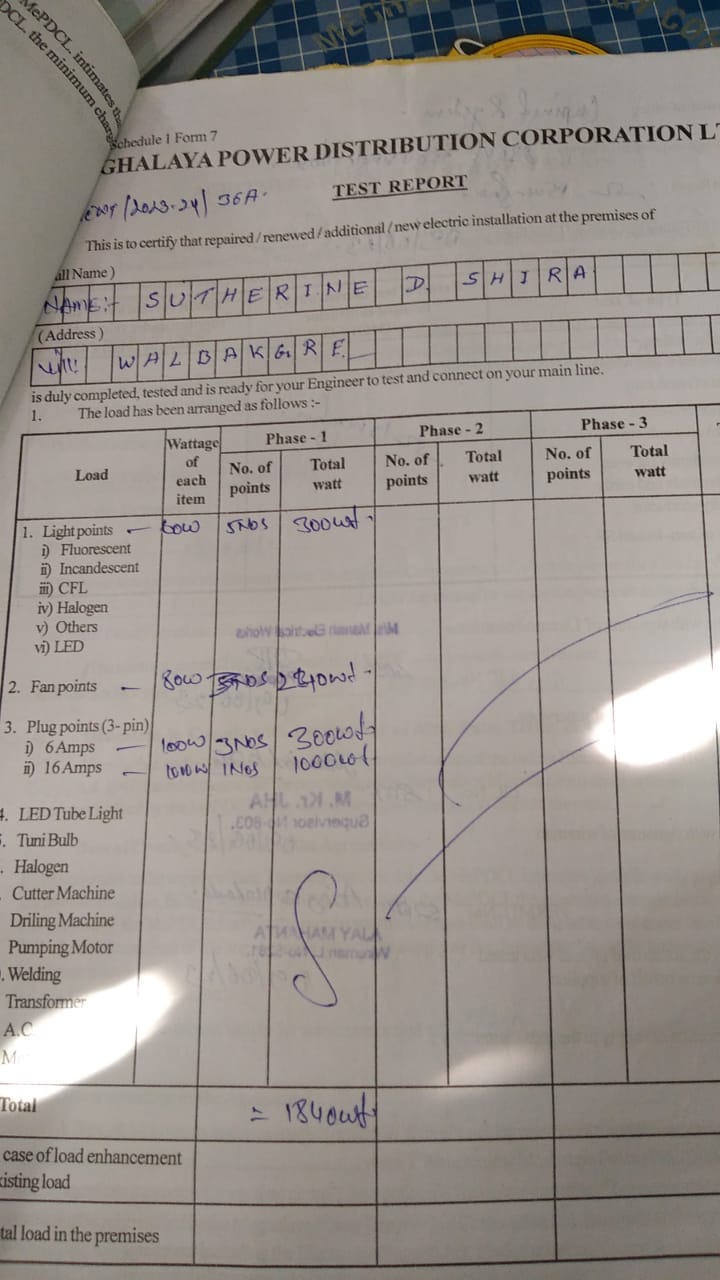 MePDCL. intimates tha
DCL the minimum char
Schedule 1 Form 7
GHALAYA POWER DISTRIBUTION CORPORATION LT
/2023-24/ 36A.
TEST REPORT
This is to certify that repaired / renewed / additional / new electric installation at the premises of
ull Name )
NAME:- SUTHERINE D. SHIRA
(Address )
Vill: WALBAKGRE.
is duly completed, tested and is ready for your Engineer to test and connect on your main line.
1. The load has been arranged as follows :-
Load Wattage of each item Phase - 1 Phase - 2 Phase - 3
No. of points Total watt No. of points Total watt No. of points Total watt
1. Light points – 60W 5NOS 300wt.
i) Fluorescent
ii) Incandescent
iii) CFL
iv) Halogen
v) Others
vi) LED
2. Fan points – 80W 240wt -
3. Plug points (3- pin)
i) 6 Amps – 100W 3NOS 300wt
ii) 16 Amps – 1000W 1NOS 1000wt
4. LED Tube Light
5. Tuni Bulb
. Halogen
. Cutter Machine
Driling Machine
Pumping Motor
. Welding
Transformer
A.C
M
Total = 1840wt
case of load enhancement
xisting load
tal load in the premises